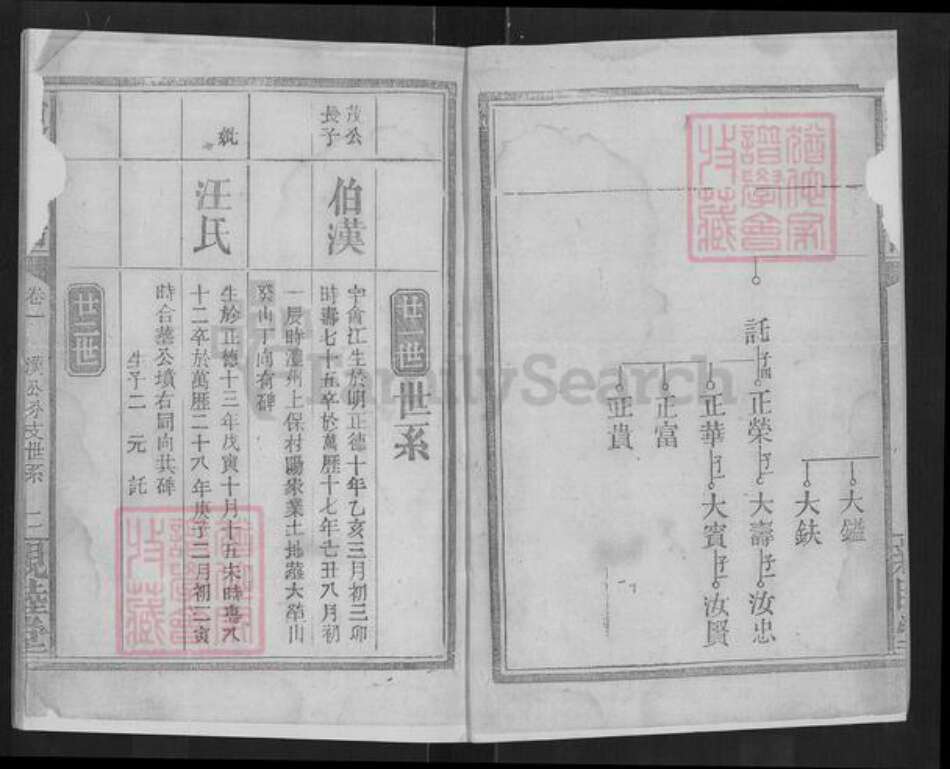 大鎰
大鈇
託 子 正榮 子一 大壽 子一 汝忠
正華 子一 大賓 子一 汝賢
正富
正貴
廿一世 世系
茂公長子 伯漢
字會江生於明正德十年乙亥三月初三卯
時壽七十五卒於萬歷十七年己丑八月初
一辰時灋州上保村陽家業土地蕊大塋山
癸山丁向有碑
妣 汪氏
生於正德十三年戊寅十月十五未時壽八
十二卒於萬歷二十八年庚子二月初二亥
時合塟公墳右同向共碑
生子二 元 託
廿二世
卷一 漢公分支世系 二 親睦堂
FamilySearch